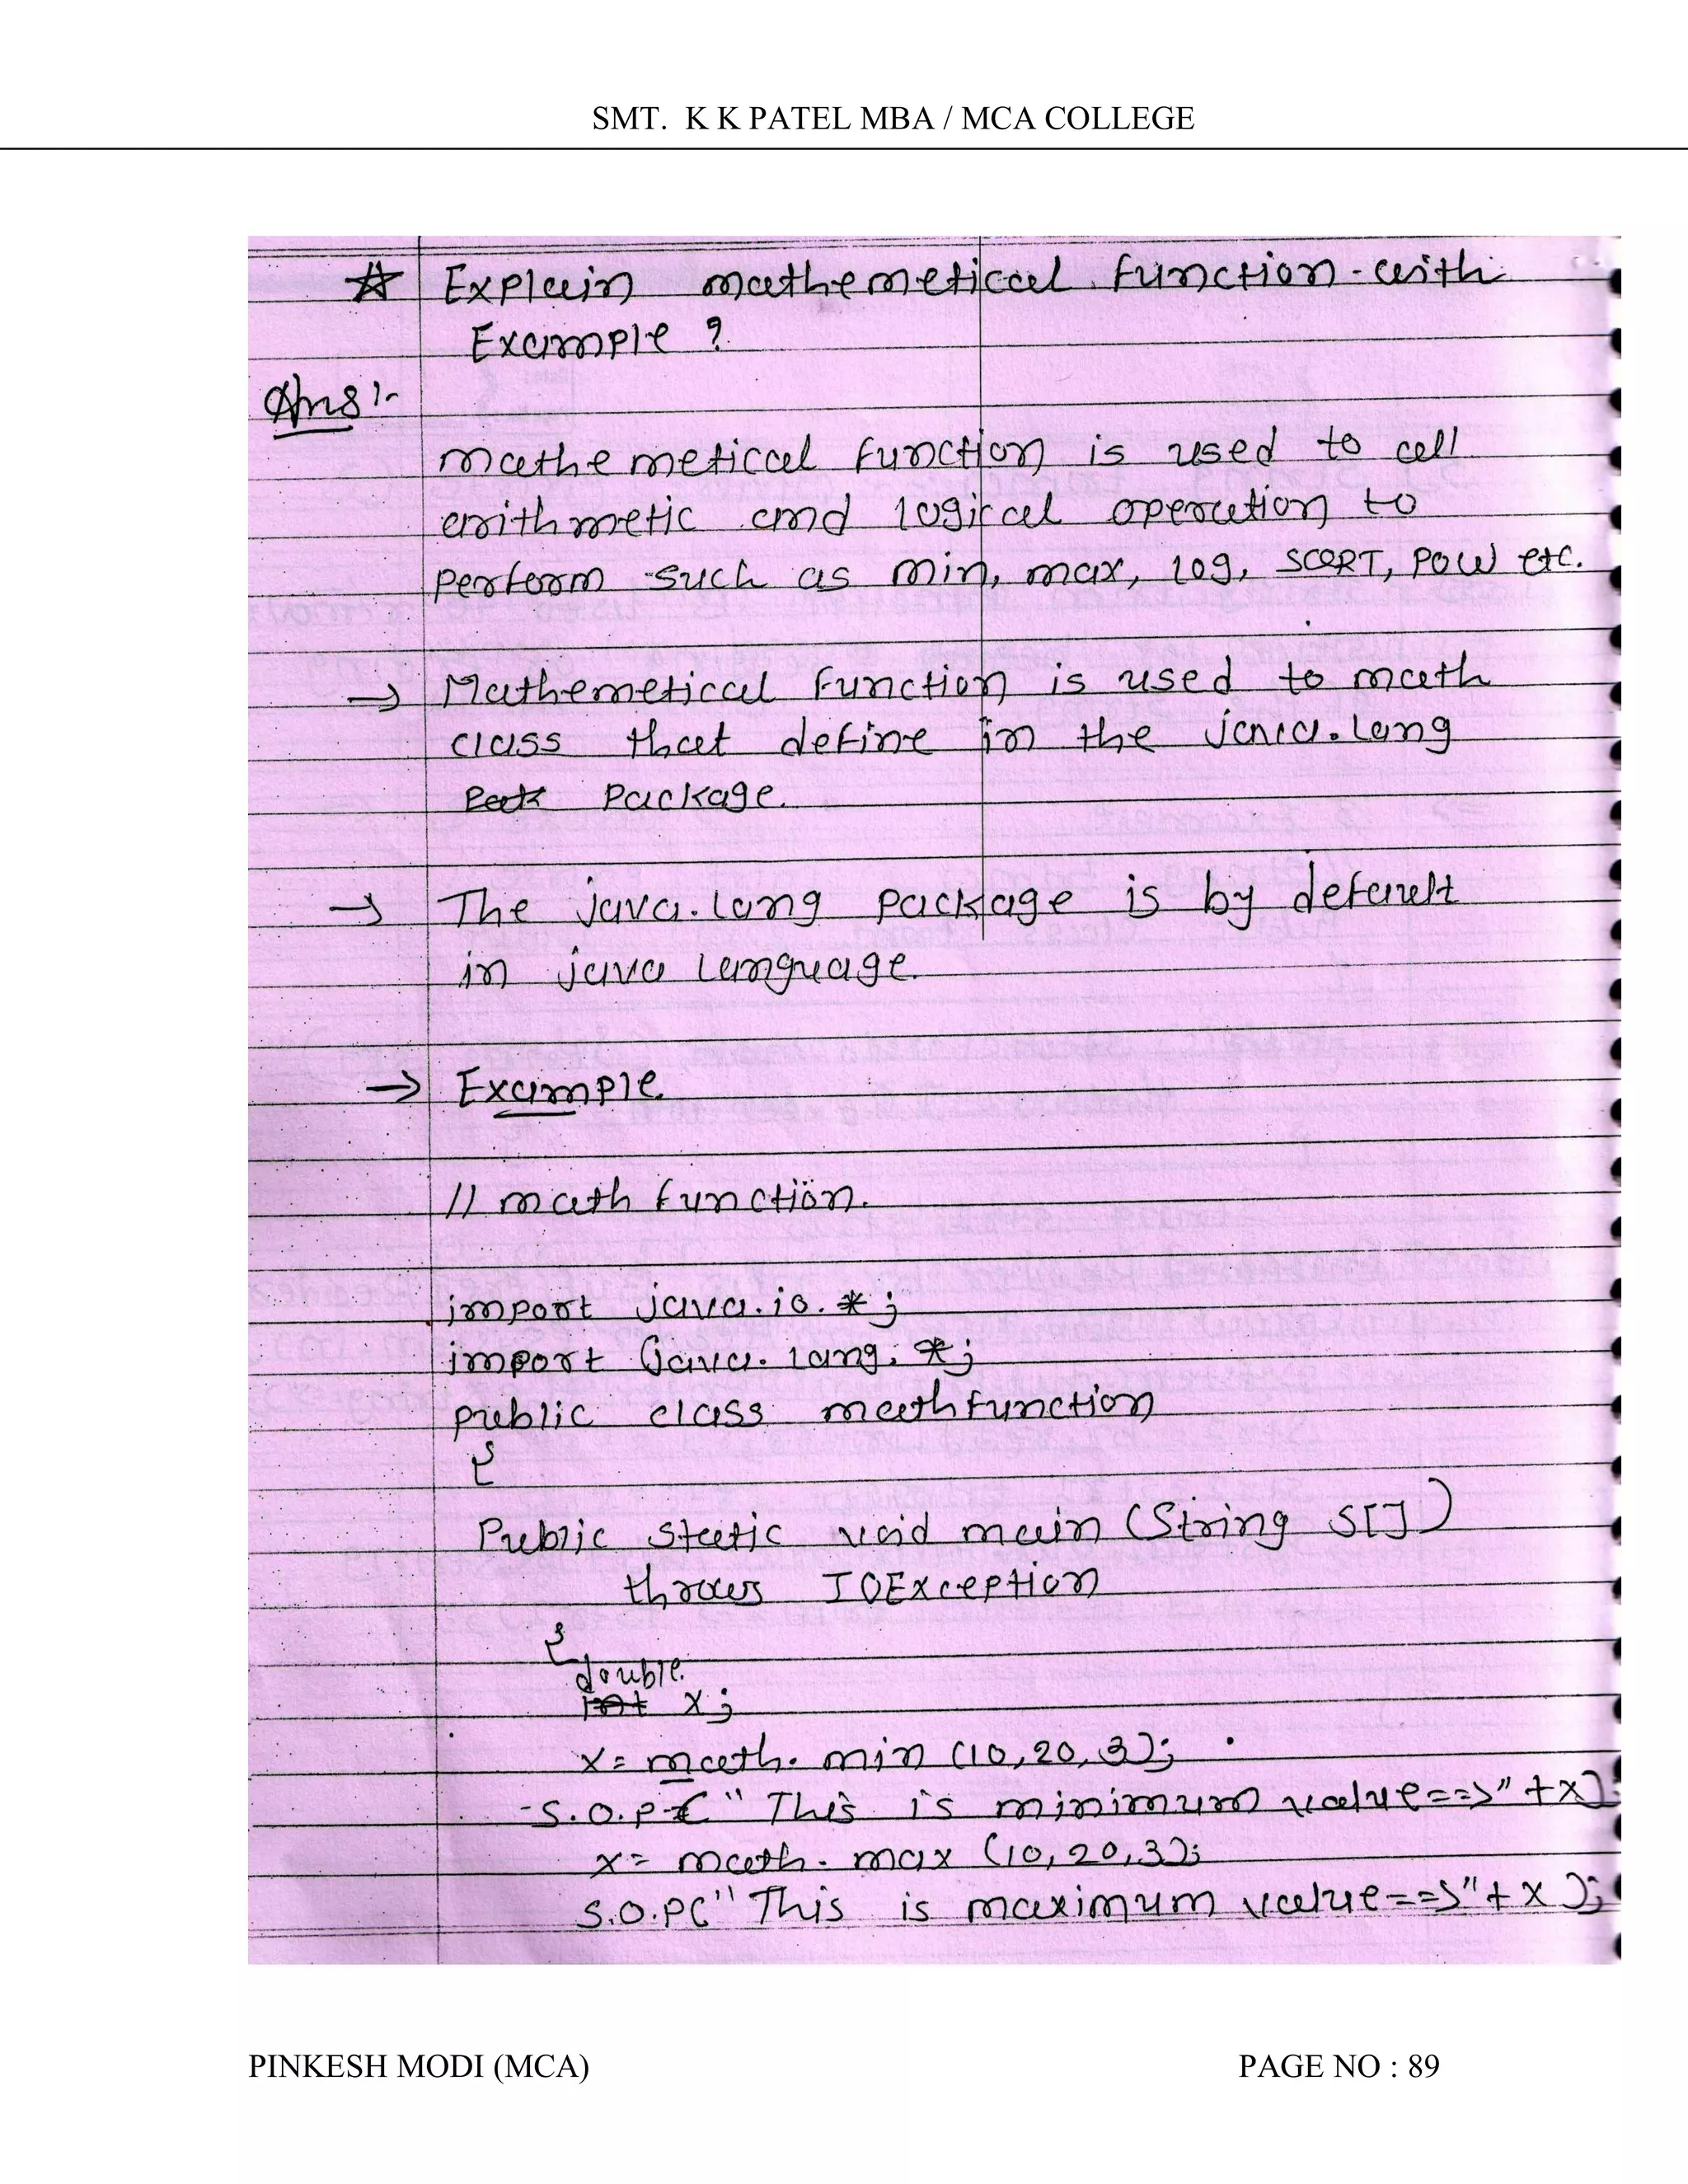 SMT. K K PATEL MBA / MCA COLLEGE
☆ Explain mathemetical function with
Example ?
Ans :-
mathemetical function is used to all
arithmetic and logical operation to
perform such as min, max, log, SCQRT, POW etc.
→ Mathemetical function is used to math
class that define in the java.lang
package.
→ The java.lang package is by default
in java language.
→ Example.
// math function.
import java.io.*;
import java.lang.*;
public class mathfunction
{
Public static void main (String S[])
throws IOException
{
double
int x;
x= math. min (10,20,3);
S.O.P(" This is minimum value==>" +x);
x= math. max (10,20,3);
S.O.P(" This is maximum value==>"+x);
PINKESH MODI (MCA) PAGE NO : 89